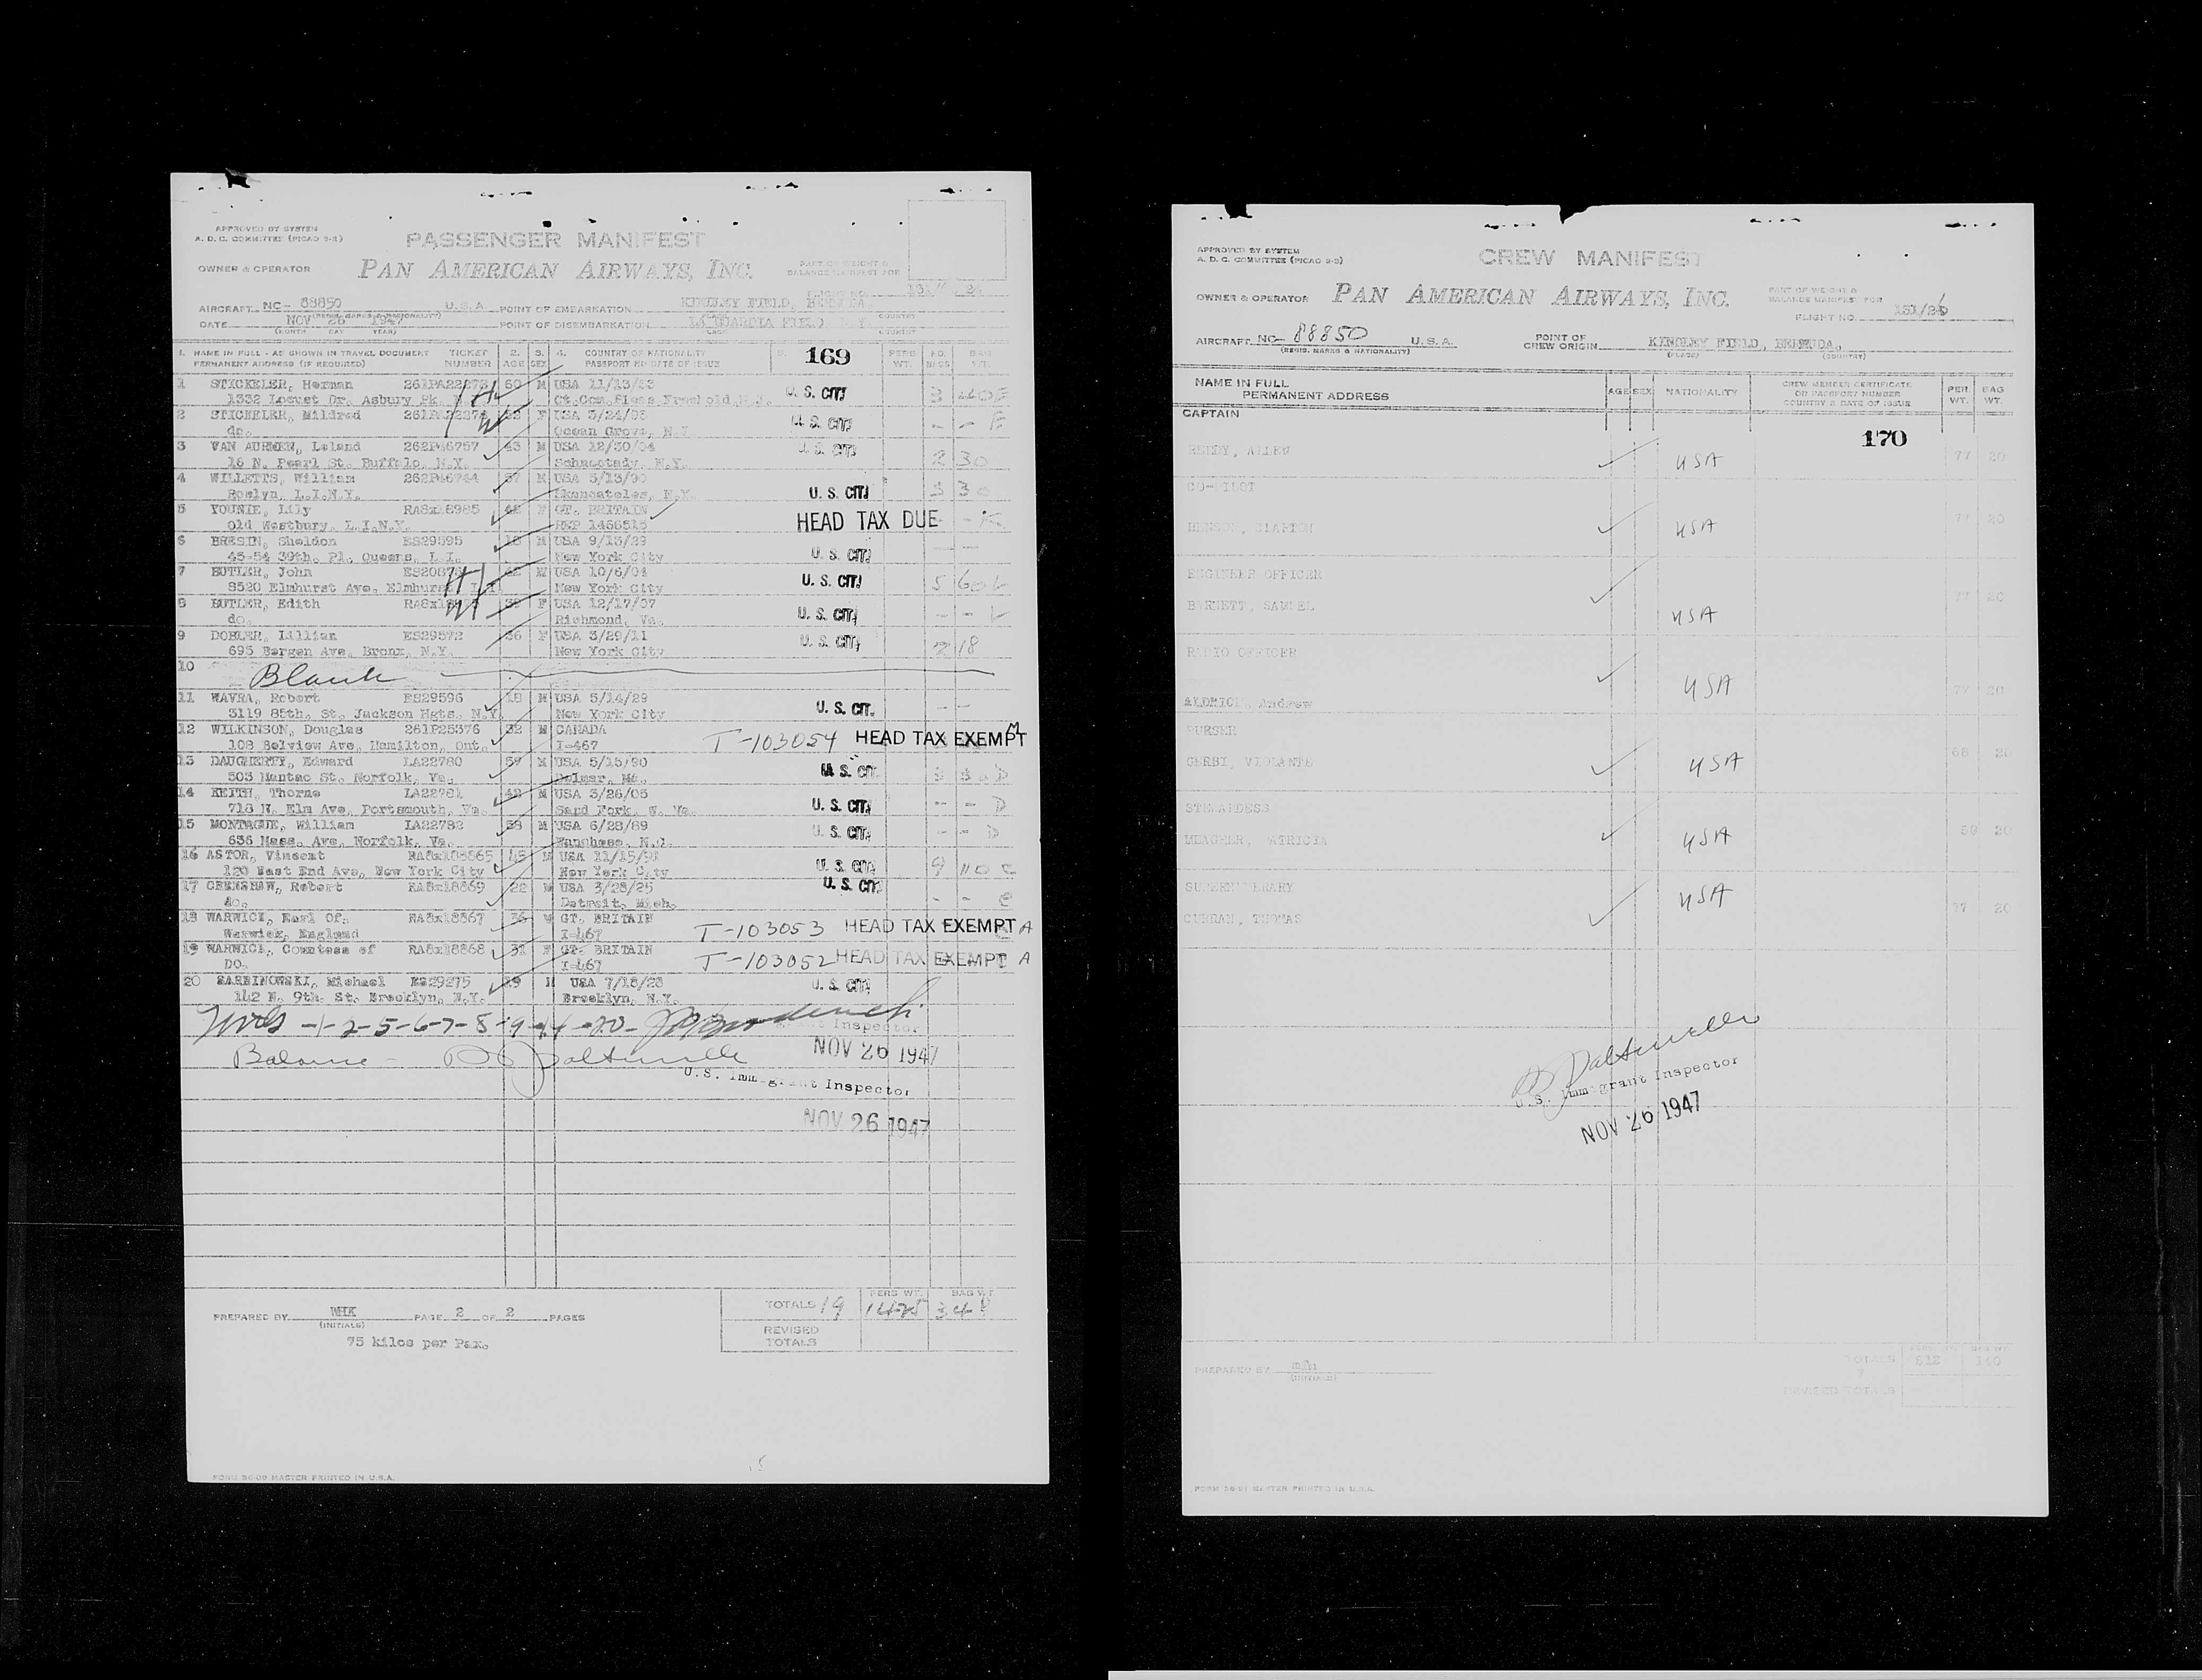 APPROVED BY SYSTEM
A. D. C. COMMITTEE (PICAO 2-2)
PASSENGER MANIFEST
OWNER & OPERATOR PAN AMERICAN AIRWAYS, INC.
PART OF WEIGHT &
BALANCE MANIFEST FOR
FLIGHT NO.
AIRCRAFT NC- 88850 U.S.A. POINT OF EMBARKATION KINDLEY FIELD, BERMUDA
DATE NOV 26 1947 POINT OF DISEMBARKATION LA GUARDIA FIELD N.Y.
(MONTH DAY YEAR) COUNTRY
1. NAME IN FULL - AS SHOWN IN TRAVEL DOCUMENT TICKET 2. 3. 4. COUNTRY OF NATIONALITY 5. 169 PERS NO. BAG
PERMANENT ADDRESS (IF REQUIRED) NUMBER AGE SEX PASSPORT NO DATE OF ISSUE WT. BAGS WT.
1 STICKELER, Herman 60 M USA 11/13/ U. S. CIT. 3 40E
1332 Locust Dr. Asbury Pk. Ct.Com.Pleas Freehold N.J.
2 STICKELER, Mildred F USA U. S. CIT. - - E
do. Ocean Grove, N.J.
3 Leland 262P46757 43 M USA 12/30/04 U. S. CIT. 2 30
16 N. Pearl St. Buffalo, N.Y. N.Y.
4 WILLETTS, William 262P46744 57 M USA 5/13/90 U. S. CIT. 3 30
Roslyn, L.I.N.Y. Skaneateles, N.Y.
5 YOUNIE, Lily RA8x18985 F GT. BRITAIN HEAD TAX DUE
Old Westbury, L.I.N.Y.
6 BRESIN, Sheldon ES29595 18 M USA 9/13/29 U. S. CIT. - -
45-54 39th. Pl. Queens, L.I. New York City
7 BUTLER, John M USA 10/6/04 U. S. CIT. 5 60
8520 Elmhurst Ave. Elmhurst New York City
8 BUTLER, Edith F USA 12/17/07 U. S. CIT. - -
do. Richmond, Va.
9 DOBLER, Lillian ES29572 36 F USA 3/29/11 U. S. CIT. 2 18
695 Bergen Ave. Bronx, N.Y. New York City
10 Blank
11 WAVRA, Robert ES29596 18 M USA 5/14/29 U. S. CIT. - -
3119 85th. St. Jackson Hgts. N.Y. New York City
12 WILKINSON, Douglas 261P25376 32 M CANADA T-103054 HEAD TAX EXEMPT
108 Belview Ave, Hamilton, Ont. I-467
13 DAUGHERTY, Edward LA22780 57 M USA 5/15/90 U. S. CIT. D
503 Mantac St. Norfolk, Va. Md.
14 KEITH, Thorne LA22781 42 M USA 3/26/05 U. S. CIT. - - D
718 N. Elm Ave, Portsmouth, Va. Sard Fork, W. Va.
15 MONTAGUE, William LA22782 58 M USA 6/28/89 U. S. CIT. - - D
636 Mass. Ave, Norfolk, Va. N.C.
16 ASTOR, Vincent 45 M USA 11/15/91 U. S. CIT. 9 110 C
120 East End Ave, New York City New York City
17 CRENSHAW, Robert RA8x18869 22 M USA 3/28/25 U. S. CIT. - - C
do. Detroit, Mich.
18 WARWICK, Earl Of, RA8x18867 36 M GT. BRITAIN T-103053 HEAD TAX EXEMPT A
Warwick, England I-467
19 WARWICK, Countess of RA8x18868 31 F GT. BRITAIN T-103052 HEAD TAX EXEMPT A
DO. I-467
20 Michael ES29275 M USA 7/18/28 U. S. CIT.
142 N. 9th. St. Brooklyn, N.Y. Brooklyn, N.Y.
-1-2-5-6-7-8-9-11-20-
Inspector
NOV 26 1947
Balance -
U.S. Immigrant Inspector
NOV 26 1947
TOTALS 19 PERS WT. 1425 BAG WT.
REVISED
TOTALS
PREPARED BY WHK PAGE 2 OF 2 PAGES
(INITIALS)
75 kilos per Pax.
FORM 36-09 MASTER PRINTED IN U.S.A.
APPROVED BY SYSTEM
A. D. C. COMMITTEE (PICAO 2-2)
CREW MANIFEST
OWNER & OPERATOR PAN AMERICAN AIRWAYS, INC.
PART OF WEIGHT &
BALANCE MANIFEST FOR
FLIGHT NO. 131/26
AIRCRAFT NC- 88850 U.S.A. POINT OF CREW ORIGIN KINDLEY FIELD, BERMUDA.
(REGIS. MARKS & NATIONALITY) (PLACE) (COUNTRY)
NAME IN FULL
PERMANENT ADDRESS
AGE SEX NATIONALITY
CREW MEMBER CERTIFICATE
OR PASSPORT NUMBER
COUNTRY & DATE OF ISSUE
PER. WT. BAG WT.
CAPTAIN
170
REEDY, ALLEN USA 77 20
CO-PILOT
USA 77 20
ENGINEER OFFICER
BARNETT, SAMUEL USA 77 20
RADIO OFFICER
ALDRICH, Andrew USA 77 20
PURSER
GERBI, VIOLANTE USA 68 20
STEWARDESS
MEAGHER, PATRICIA USA 59 20
SUPERNUMERARY
CURRAN, THOMAS USA 77 20
U.S. Immigrant Inspector
NOV 26 1947
PREPARED BY
(INITIALS)
TOTALS 7 512 140
REVISED TOTALS
MASTER PRINTED IN U.S.A.